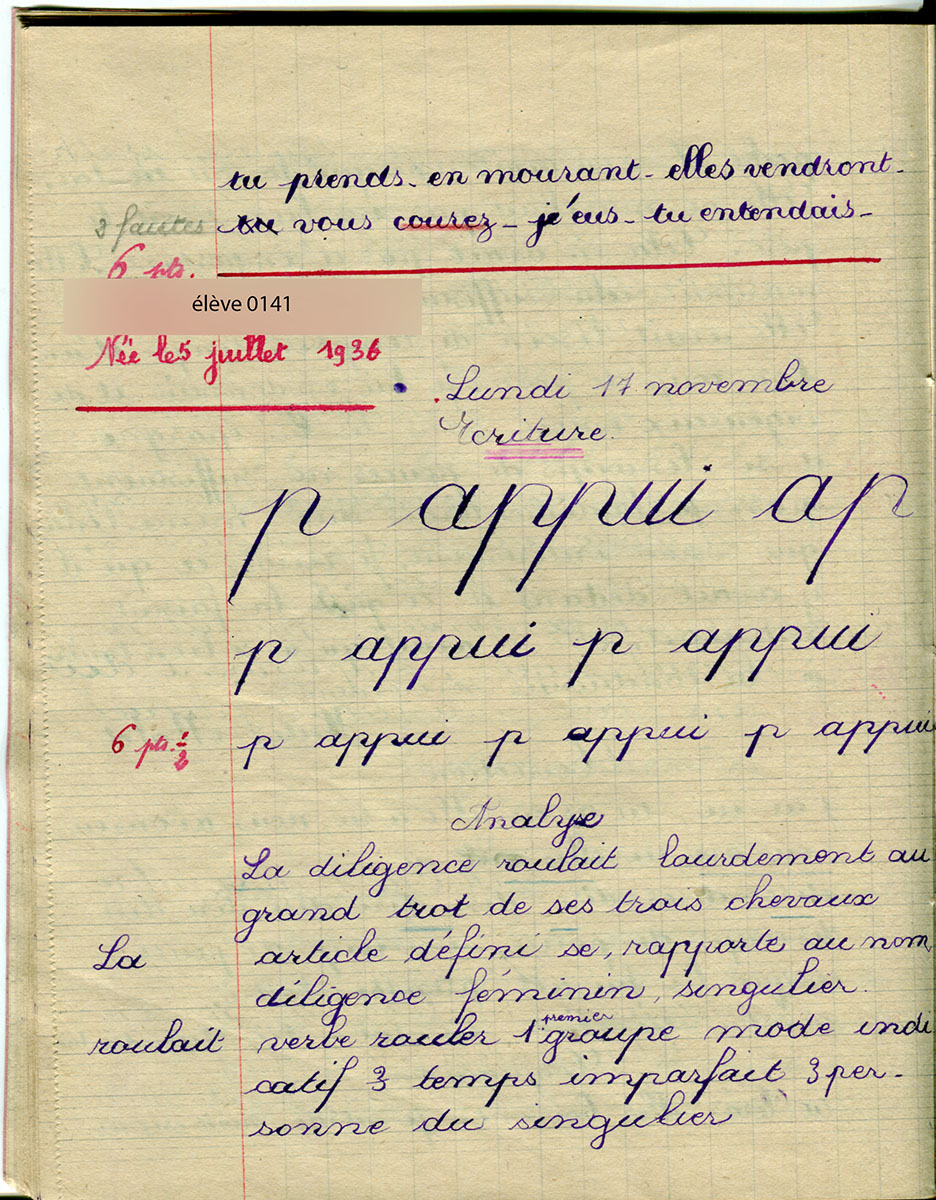 tu prends. en mourant - elles vendront -
3 fautes tu vous courez - j'eus - tu entendais -
6 pts.
élève 0141
Née le 5 juillet 1936
Lundi 17 novembre
Ecriture.
p appui ap
p appui p appui
6 pts. 1/2 p appui p appui p appui
Analyse
La diligence roulait lourdement au
grand trot de ses trois chevaux
La article défini se, rapporte au nom
diligence féminin, singulier.
premier
roulait verbe rouler 1 groupe mode indi
catif 3 temps imparfait 3 per-
sonne du singulier